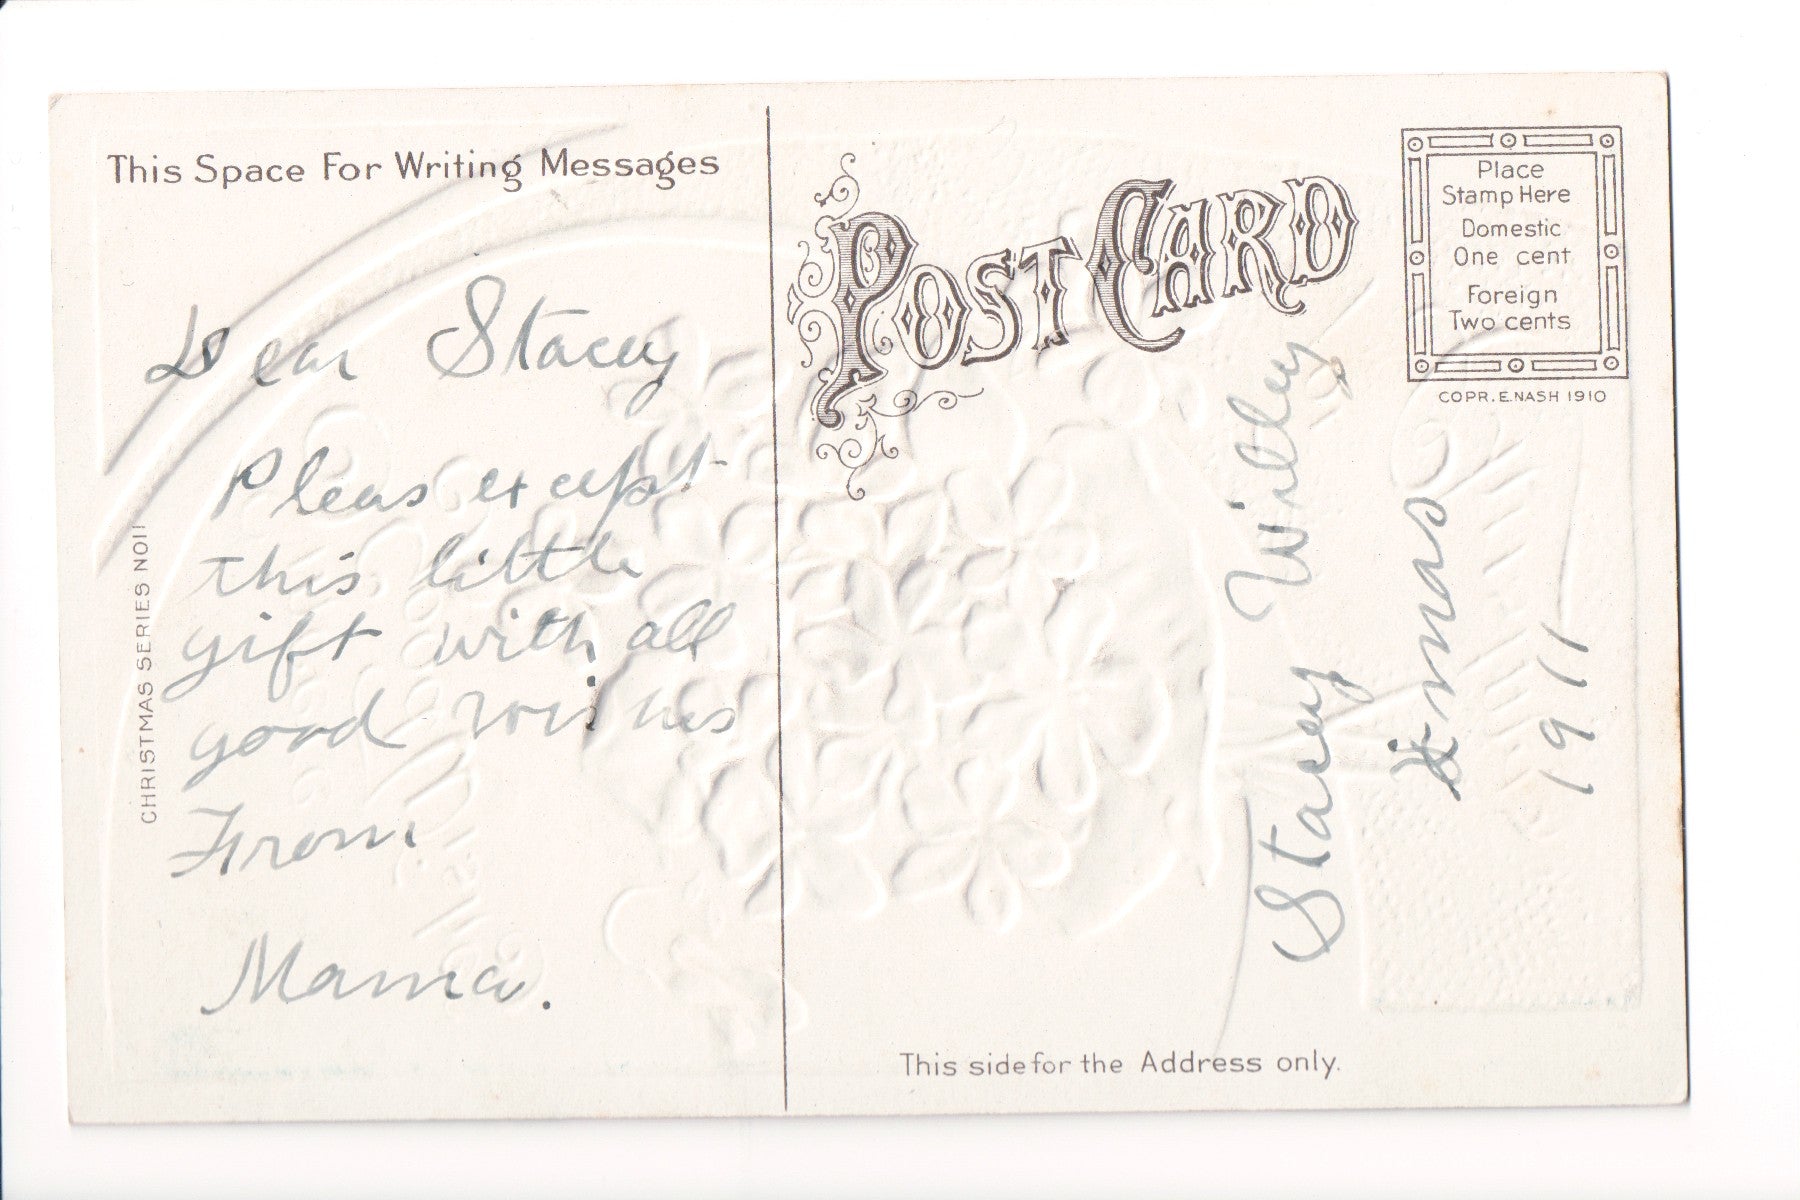 This Space For Writing Messages
Dear Stacey
Pleas except
this little
gift with all
good wishes
From
Mama.
CHRISTMAS SERIES NO 11
POST CARD
Place
Stamp Here
Domestic
One cent
Foreign
Two cents
COPR. E. NASH 1910
Stacey Willey
X-mas
1911
This side for the Address only.